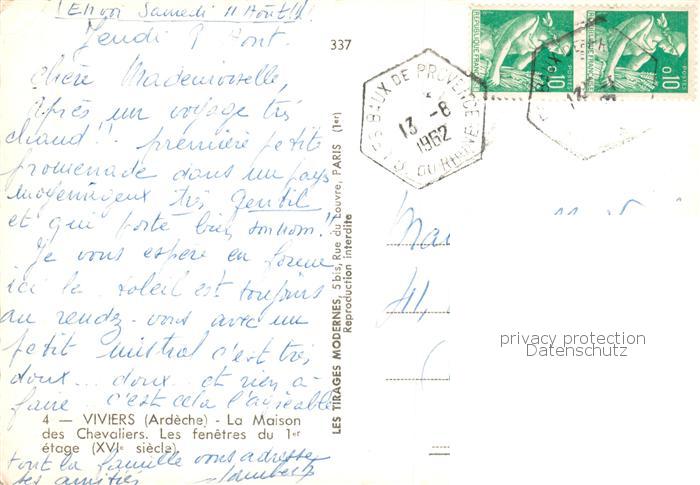 Envoi Samedi 11 Août !!
Jeudi 9 Aout.
chère Mademoiselle,
après un voyage très
chaud !! première petite
promenade dans un pays
moyennageux très Gentil
et qui porte bien son nom !!
Je vous espère en forme
ici le soleil est toujours
au rendez-vous avec un
petit mistral c'est très
doux... doux... et rien à
faire.. c'est cela l'agréable
4 — VIVIERS (Ardèche) - La Maison
des Chevaliers. Les fenêtres du 1er
étage (XVIe siècle).
toute la famille vous adresse
ses amitiés
337
LES TIRAGES MODERNES, 5 bis, Rue du Louvre, PARIS (1er)
Reproduction interdite
LES BAUX DE PROVENCE
13 -8
1962
B. DU RHONE
REPUBLIQUE FRANÇAISE
POSTES
0,10
REPUBLIQUE FRANÇAISE
POSTES
0,10
13
41,
privacy protection
Datenschutz